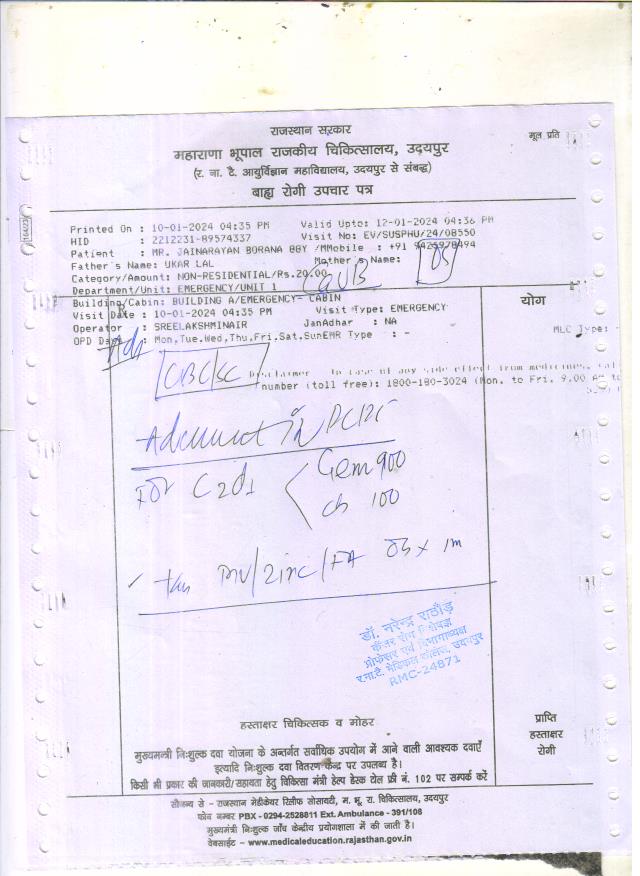 राजस्थान सरकार
मूल प्रति
महाराणा भूपाल राजकीय चिकित्सालय, उदयपुर
(र. ना. टै. आयुर्विज्ञान महाविद्यालय, उदयपुर से संबद्ध)
बाह्य रोगी उपचार पत्र
Printed On : 10-01-2024 04:35 PM Valid Upto: 12-01-2024 04:36 PM
HID : 2212231-89574337 Visit No: EV/SUSPHU/24/08550
Patient : MR. JAINARAYAN BORANA Mobile : +91
Father's Name: UKAR LAL Mother's Name:
Category/Amount: NON-RESIDENTIAL/Rs.20.00
Department/Unit: EMERGENCY/UNIT 1
Building/Cabin: BUILDING A/EMERGENCY- CABIN
योग
Visit Date : 10-01-2024 04:35 PM Visit Type: EMERGENCY
Operator : SREELAKSHMINAIR JanAdhar : NA
MLC Type: -
OPD Mon,Tue.Wed,Thu,Fri.Sat.Sun EMR Type : -
Adv
CBC
Disclaimer In case of any side effect from medicines,
number (toll free): 1800-180-3024 (Mon. to Fri. 9.00 AM
in
For C2d1
Gem 900
100
MV/Zinc/FA x 1m
डॉ. नरेन्द्र राठौड़
कैंसर रोग विशेषज्ञ
प्रोफेसर एवं विभागाध्यक्ष
र.ना.टै. मेडिकल कॉलेज, उदयपुर
RMC-24871
हस्ताक्षर चिकित्सक व मोहर
प्राप्ति
हस्ताक्षर
रोगी
मुख्यमन्त्री निःशुल्क दवा योजना के अन्तर्गत सर्वाधिक उपयोग में आने वाली आवश्यक दवाएँ
इत्यादि निःशुल्क दवा वितरण केन्द्र पर उपलब्ध है।
किसी भी प्रकार की जानकारी/सहायता हेतु चिकित्सा मंत्री हेल्प डेस्क टोल फ्री नं. 102 पर सम्पर्क करें
सौजन्य से - राजस्थान मेडीकेयर रिलीफ सोसायटी, म. भू. रा. चिकित्सालय, उदयपुर
फोन नम्बर PBX - 0294-2528811 Ext. Ambulance - 391/108
मुख्यमंत्री निःशुल्क जाँच केन्द्रीय प्रयोगशाला में की जाती है।
वेबसाईट - www.medicaleducation.rajasthan.gov.in